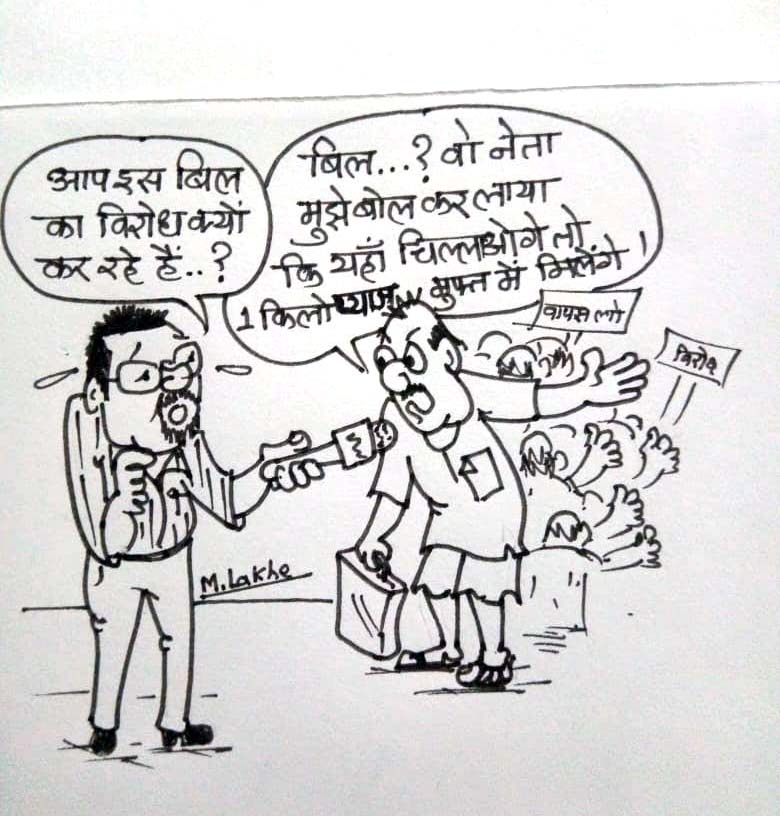 आप इस बिल
का विरोध क्यों
कर रहे हैं..?
बिल...? वो नेता
मुझे बोल कर लाया
कि यहाँ चिल्लाओगे तो
1 किलो प्याज मुफ्त में मिलेंगे!
वापस लो
विरोध
M.Lakhe